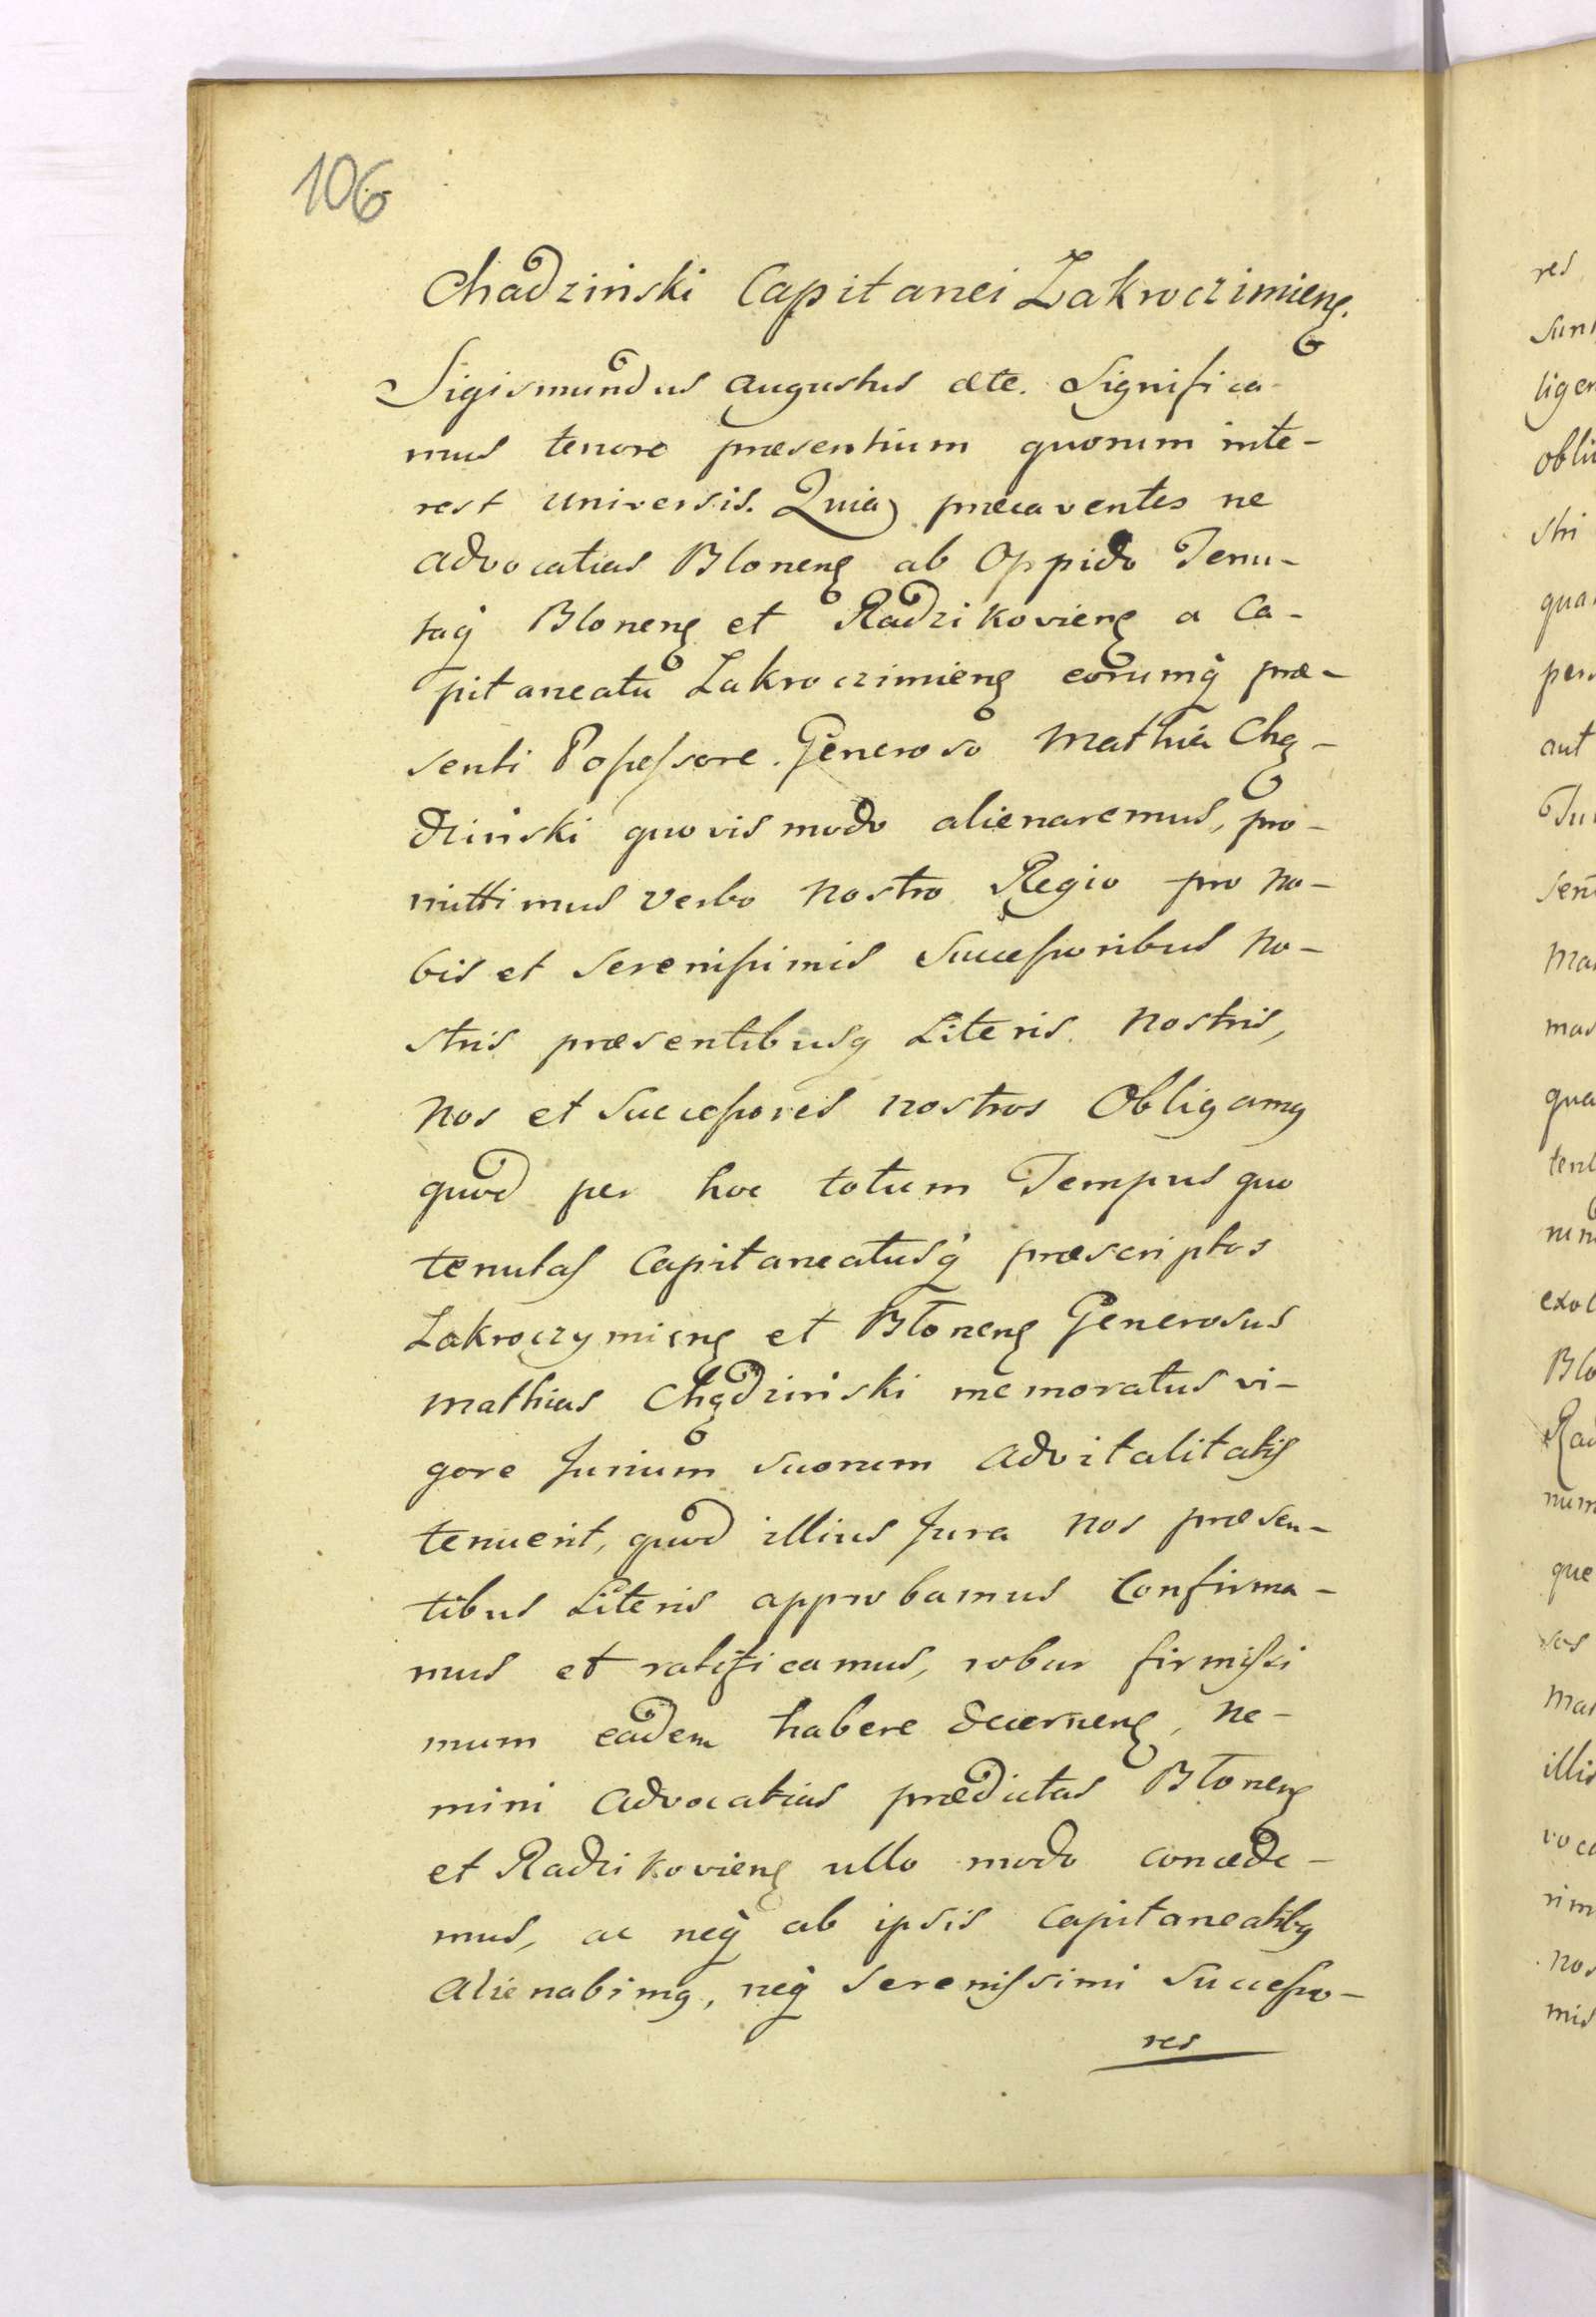 106
Chadziński Capitanei Zakroczimieng.
Sigismundus Augustus ætc. Significa-
mus tenore præsentium quorum inte-
rest Universis. Quia præcaventes ne
advocatias Bloneng ab Oppido Tenu-
taq Bloneng et Radzikovieng a Ca-
pitaneatu Zakroczimieng eorumq præ-
senti Possessore. Generoso Mathia Chą-
dziński quovis modo alienaremus, pro-
mittimus Verbo Nostro Regio pro No-
bis et Serenissimis Successoribus No-
stris præsentibusq Literis Nostris,
Nos et Successores nostros Obligamg
quod per hoc totum Tempus quo
tenutas Capitaneatusq præscriptos
Zakroczymieng et Błoneng Generosus
Mathias Chądziński memoratus vi-
gore Jurium suorum advitalitatis
tenuerit, quod illius Jura Nos præsen-
tibus Literis approbamus Confirma-
mus et ratificamus, robur firmissi
mum eadem habere decerneng, ne-
mini Advocatias prædictas Błoneng
et Radzikovieng ullo modo concede-
mus, ac neq ab ipsis Capitaneatibg
Alienabimg, neq Serenissimi Successo-
res